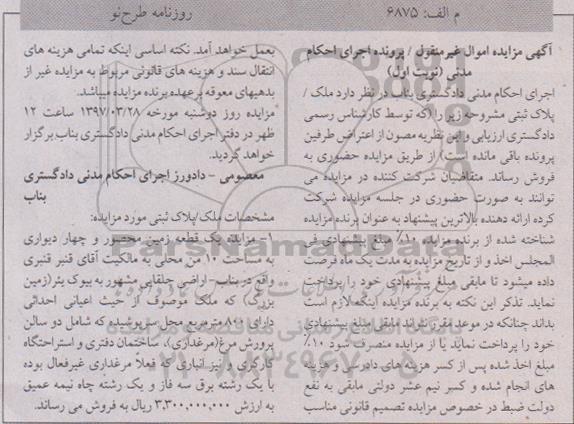 م الف: ۶۸۷۵
روزنامه طرح‌نو
آگهی مزایده اموال غیرمنقول / پرونده اجرای احکام
مدنی (نوبت اول)
اجرای احکام مدنی دادگستری بناب در نظر دارد ملک /
پلاک ثبتی مشروحه زیر را (که توسط کارشناس رسمی
دادگستری ارزیابی و این نظریه مصون از اعتراض طرفین
پرونده باقی مانده است) از طریق مزایده حضوری به
فروش رساند. متقاضیان شرکت کننده در مزایده می
توانند به صورت حضوری در جلسه مزایده شرکت
کرده ارائه دهنده بالاترین پیشنهاد به عنوان برنده مزایده
شناخته شده از برنده مزایده ۱۰٪ مبلغ پیشنهادی فی
المجلس اخذ و از تاریخ مزایده به مدت یک ماه فرصت
داده میشود تا مابقی مبلغ پیشنهادی خود را پرداخت
نماید. تذکر این نکته به برنده مزایده اینکه لازم است
بداند چنانکه در موعد مقرر نتواند مابقی مبلغ پیشنهادی
خود را پرداخت نماید یا از مزایده منصرف شود ۱۰٪
مبلغ اخذ شده پس از کسر هزینه های دادرسی و هزینه
های انجام شده و کسر نیم عشر دولتی مابقی به نفع
دولت ضبط در خصوص مزایده تصمیم قانونی مناسب
بعمل خواهد آمد. نکته اساسی اینکه تمامی هزینه های
انتقال سند و هزینه های قانونی مربوط به مزایده غیر از
بدهیهای معوقه برعهده برنده مزایده میباشد.
مزایده روز دوشنبه مورخه ۱۳۹۷/۰۳/۲۸ ساعت ۱۲
ظهر در دفتر اجرای احکام مدنی دادگستری بناب برگزار
خواهد گردید.
معصومی - دادورز اجرای احکام مدنی دادگستری
بناب
مشخصات ملک/پلاک ثبتی مورد مزایده:
۱- مزایده یک قطعه زمین محصور و چهار دیواری
به مساحت ۱۲ من محلی به مالکیت آقای قنبر قنبری
واقع در بناب- اراضی چلقائی مشهور به بیوک یئر (زمین
بزرگ) که ملک موصوف از حیث اعیانی احداثی
دارای ۸۵۰ مترمربع محل سرپوشیده که شامل دو سالن
پرورش مرغ (مرغداری)، ساختمان دفتری و استراحتگاه
کارگری و نیز انباری که فعلاً مرغداری غیرفعال بوده
با یک رشته برق سه فاز و یک رشته چاه نیمه عمیق
به ارزش ۳,۳۰۰,۰۰۰,۰۰۰ ریال به فروش می رساند.
ParsNamadData
۰۲۱-۸۸۳۴۹۶۷۰-۵